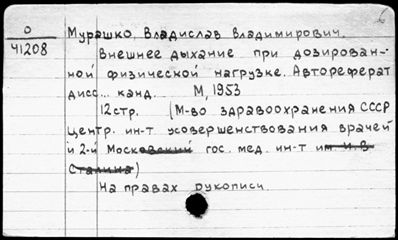 О
41208
Мурашко, Владислав Владимирович.
Внешнее дыхание при дозирован-
ной физической нагрузке. Автореферат
дисс... канд. М, 1953
12стр. (М-во здравоохранения СССР
Центр. ин-т усовершенствования врачей
и 2-й Московский гос. мед. ин-т им И.В
Сталина)
На правах рукописи.